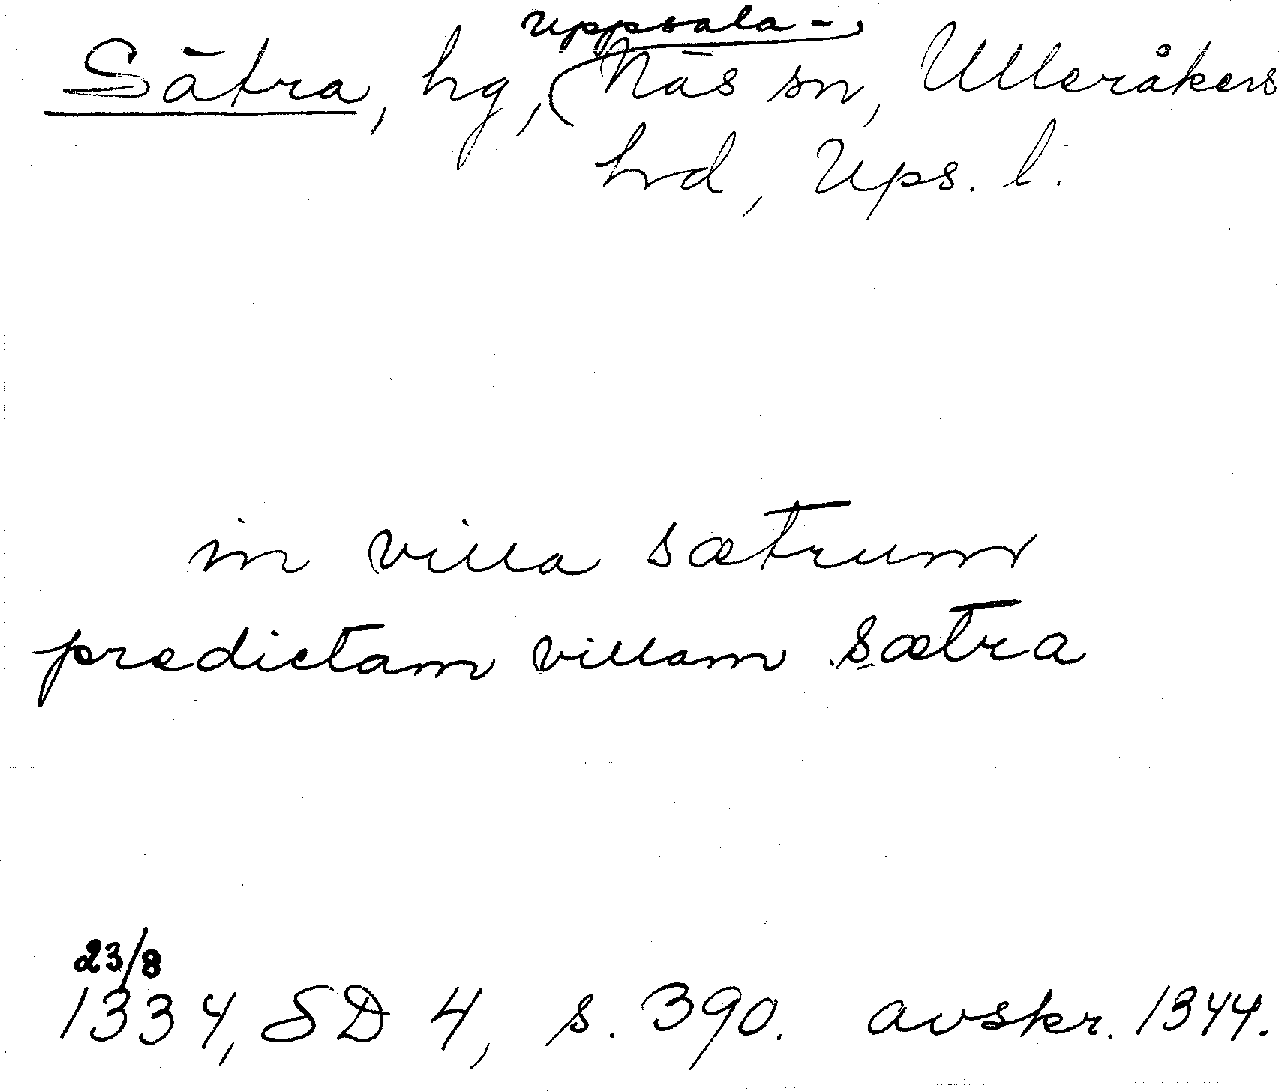 Sätra, hg, Uppsala-Näs sn, Ulleråkers
hrd, Ups. l.
in villa sætrum
predictam villam sætra
23/8
1334, SD 4, s. 390. avskr. 1344.